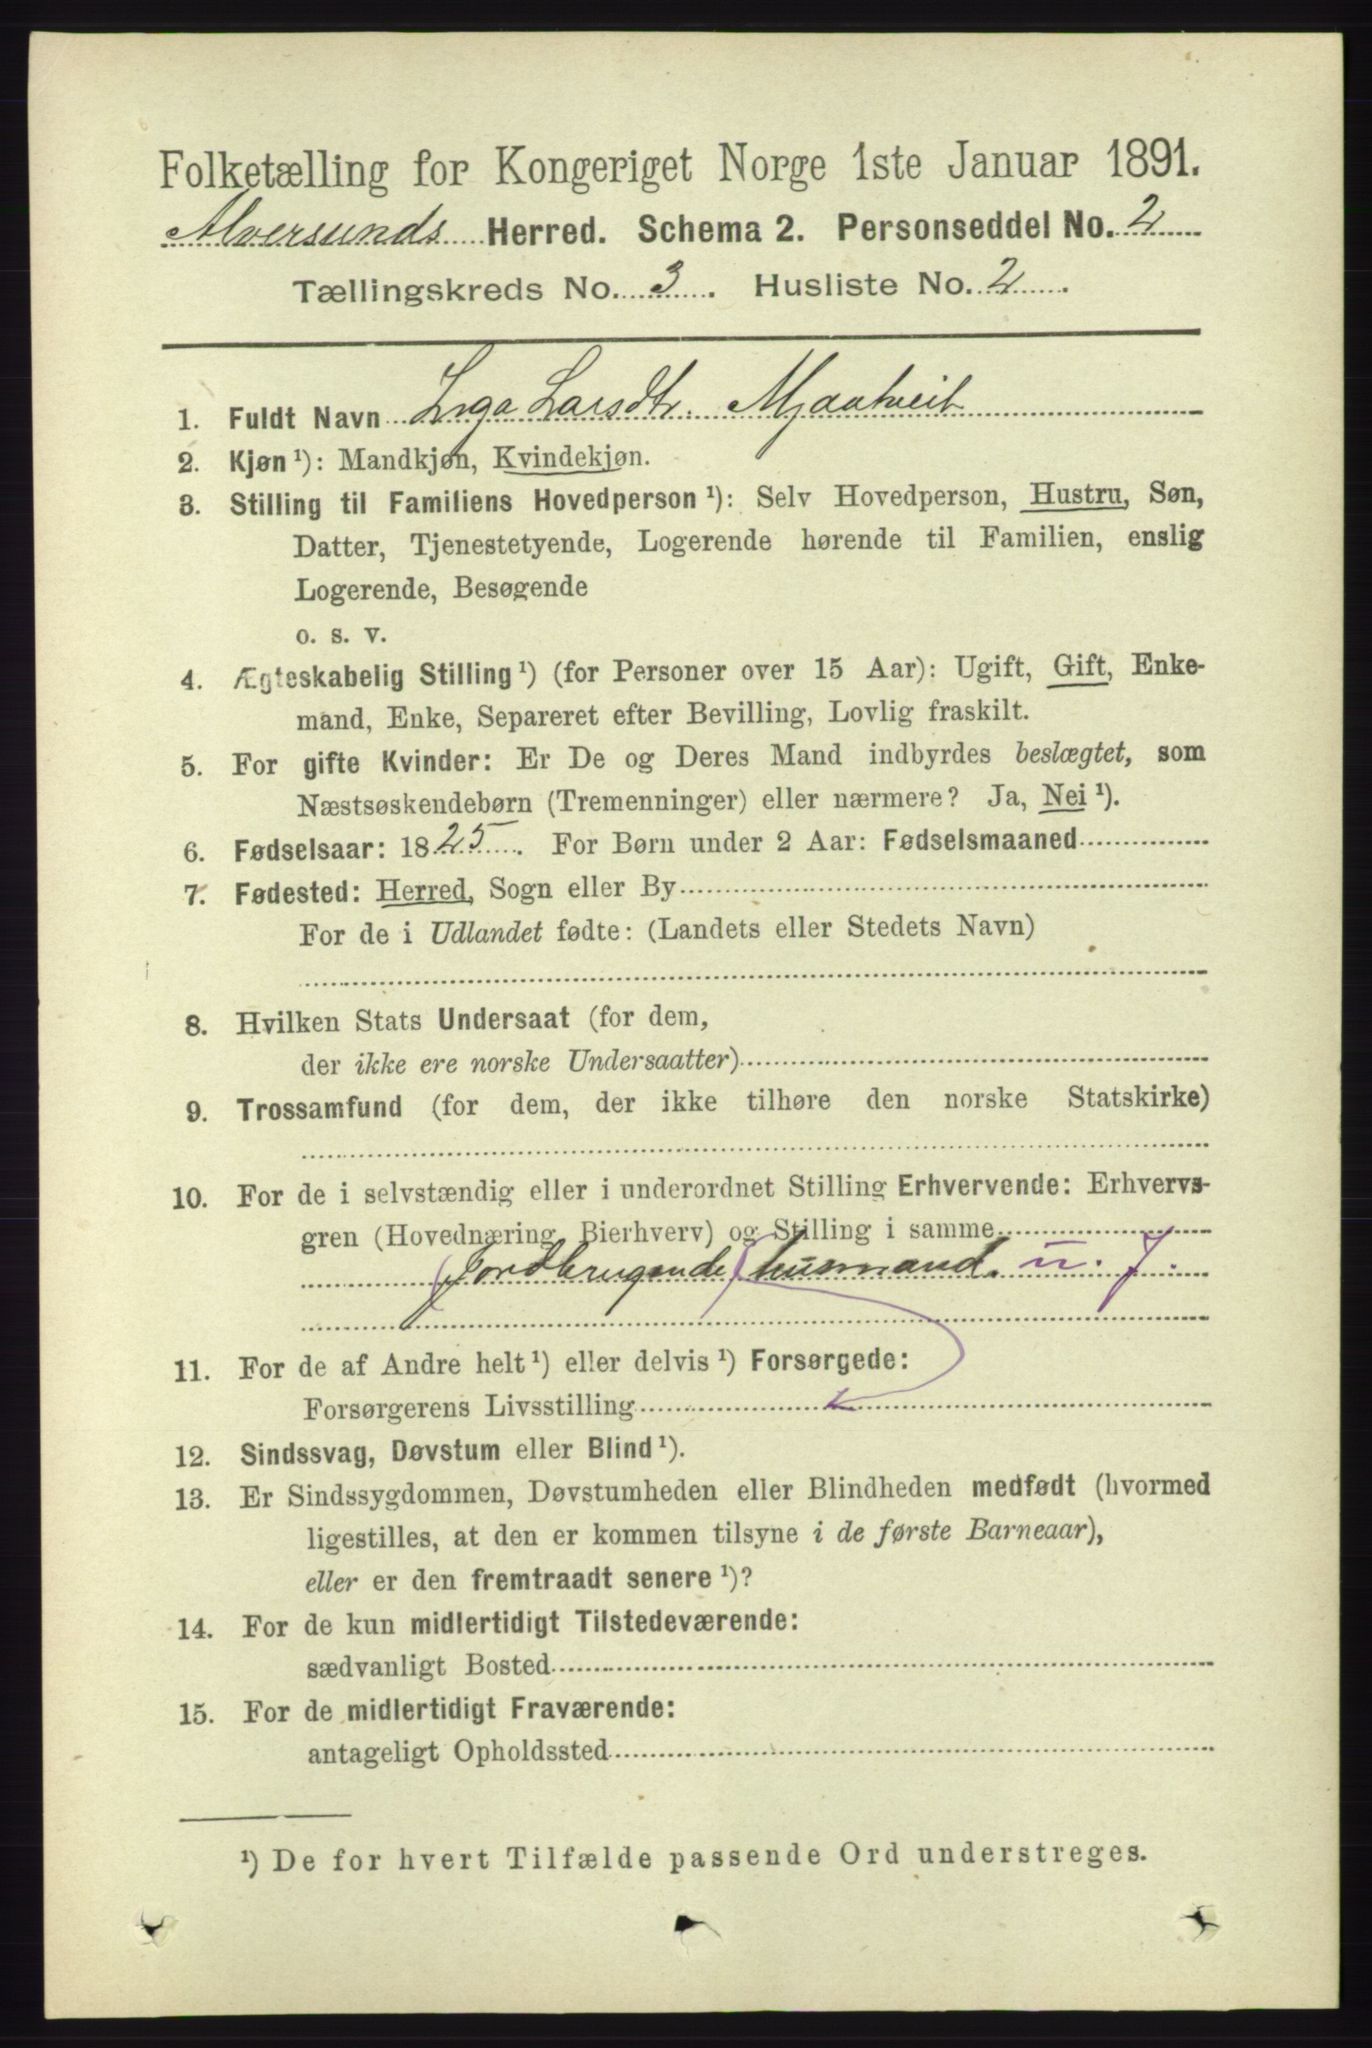 Folketælling for Kongeriget Norge 1ste Januar 1891.
Alversunds Herred. Schema 2. Personseddel No. 2
Tællingskreds No. 3. Husliste No. 2.
1. Fuldt Navn Inga Larsdtr. Mjaatveit
2. Kjøn ¹): Mandkjøn, Kvindekjøn.
3. Stilling til Familiens Hovedperson ¹): Selv Hovedperson, Hustru, Søn,
Datter, Tjenestetyende, Logerende hørende til Familien, enslig
Logerende, Besøgende
o. s. v.
4. Ægteskabelig Stilling ¹) (for Personer over 15 Aar): Ugift, Gift, Enke-
mand, Enke, Separeret efter Bevilling, Lovlig fraskilt.
5. For gifte Kvinder: Er De og Deres Mand indbyrdes beslægtet, som
Næstsøskendebørn (Tremenninger) eller nærmere? Ja, Nei ¹).
6. Fødselsaar: 1825. For Børn under 2 Aar: Fødselsmaaned
7. Fødested: Herred, Sogn eller By
For de i Udlandet fødte: (Landets eller Stedets Navn)
8. Hvilken Stats Undersaat (for dem,
der ikke ere norske Undersaatter)
9. Trossamfund (for dem, der ikke tilhøre den norske Statskirke)
10. For de i selvstændig eller i underordnet Stilling Erhvervende: Erhvervs-
gren (Hovednæring, Bierhverv) og Stilling i samme
(Jordbrugende) husmand. u. J.
11. For de af Andre helt ¹) eller delvis ¹) Forsørgede:
Forsørgerens Livsstilling
12. Sindssvag, Døvstum eller Blind ¹).
13. Er Sindssygdommen, Døvstumheden eller Blindheden medfødt (hvormed
ligestilles, at den er kommen tilsyne i de første Barneaar),
eller er den fremtraadt senere ¹)?
14. For de kun midlertidigt Tilstedeværende:
sædvanligt Bosted
15. For de midlertidigt Fraværende:
antageligt Opholdssted
¹) De for hvert Tilfælde passende Ord understreges.